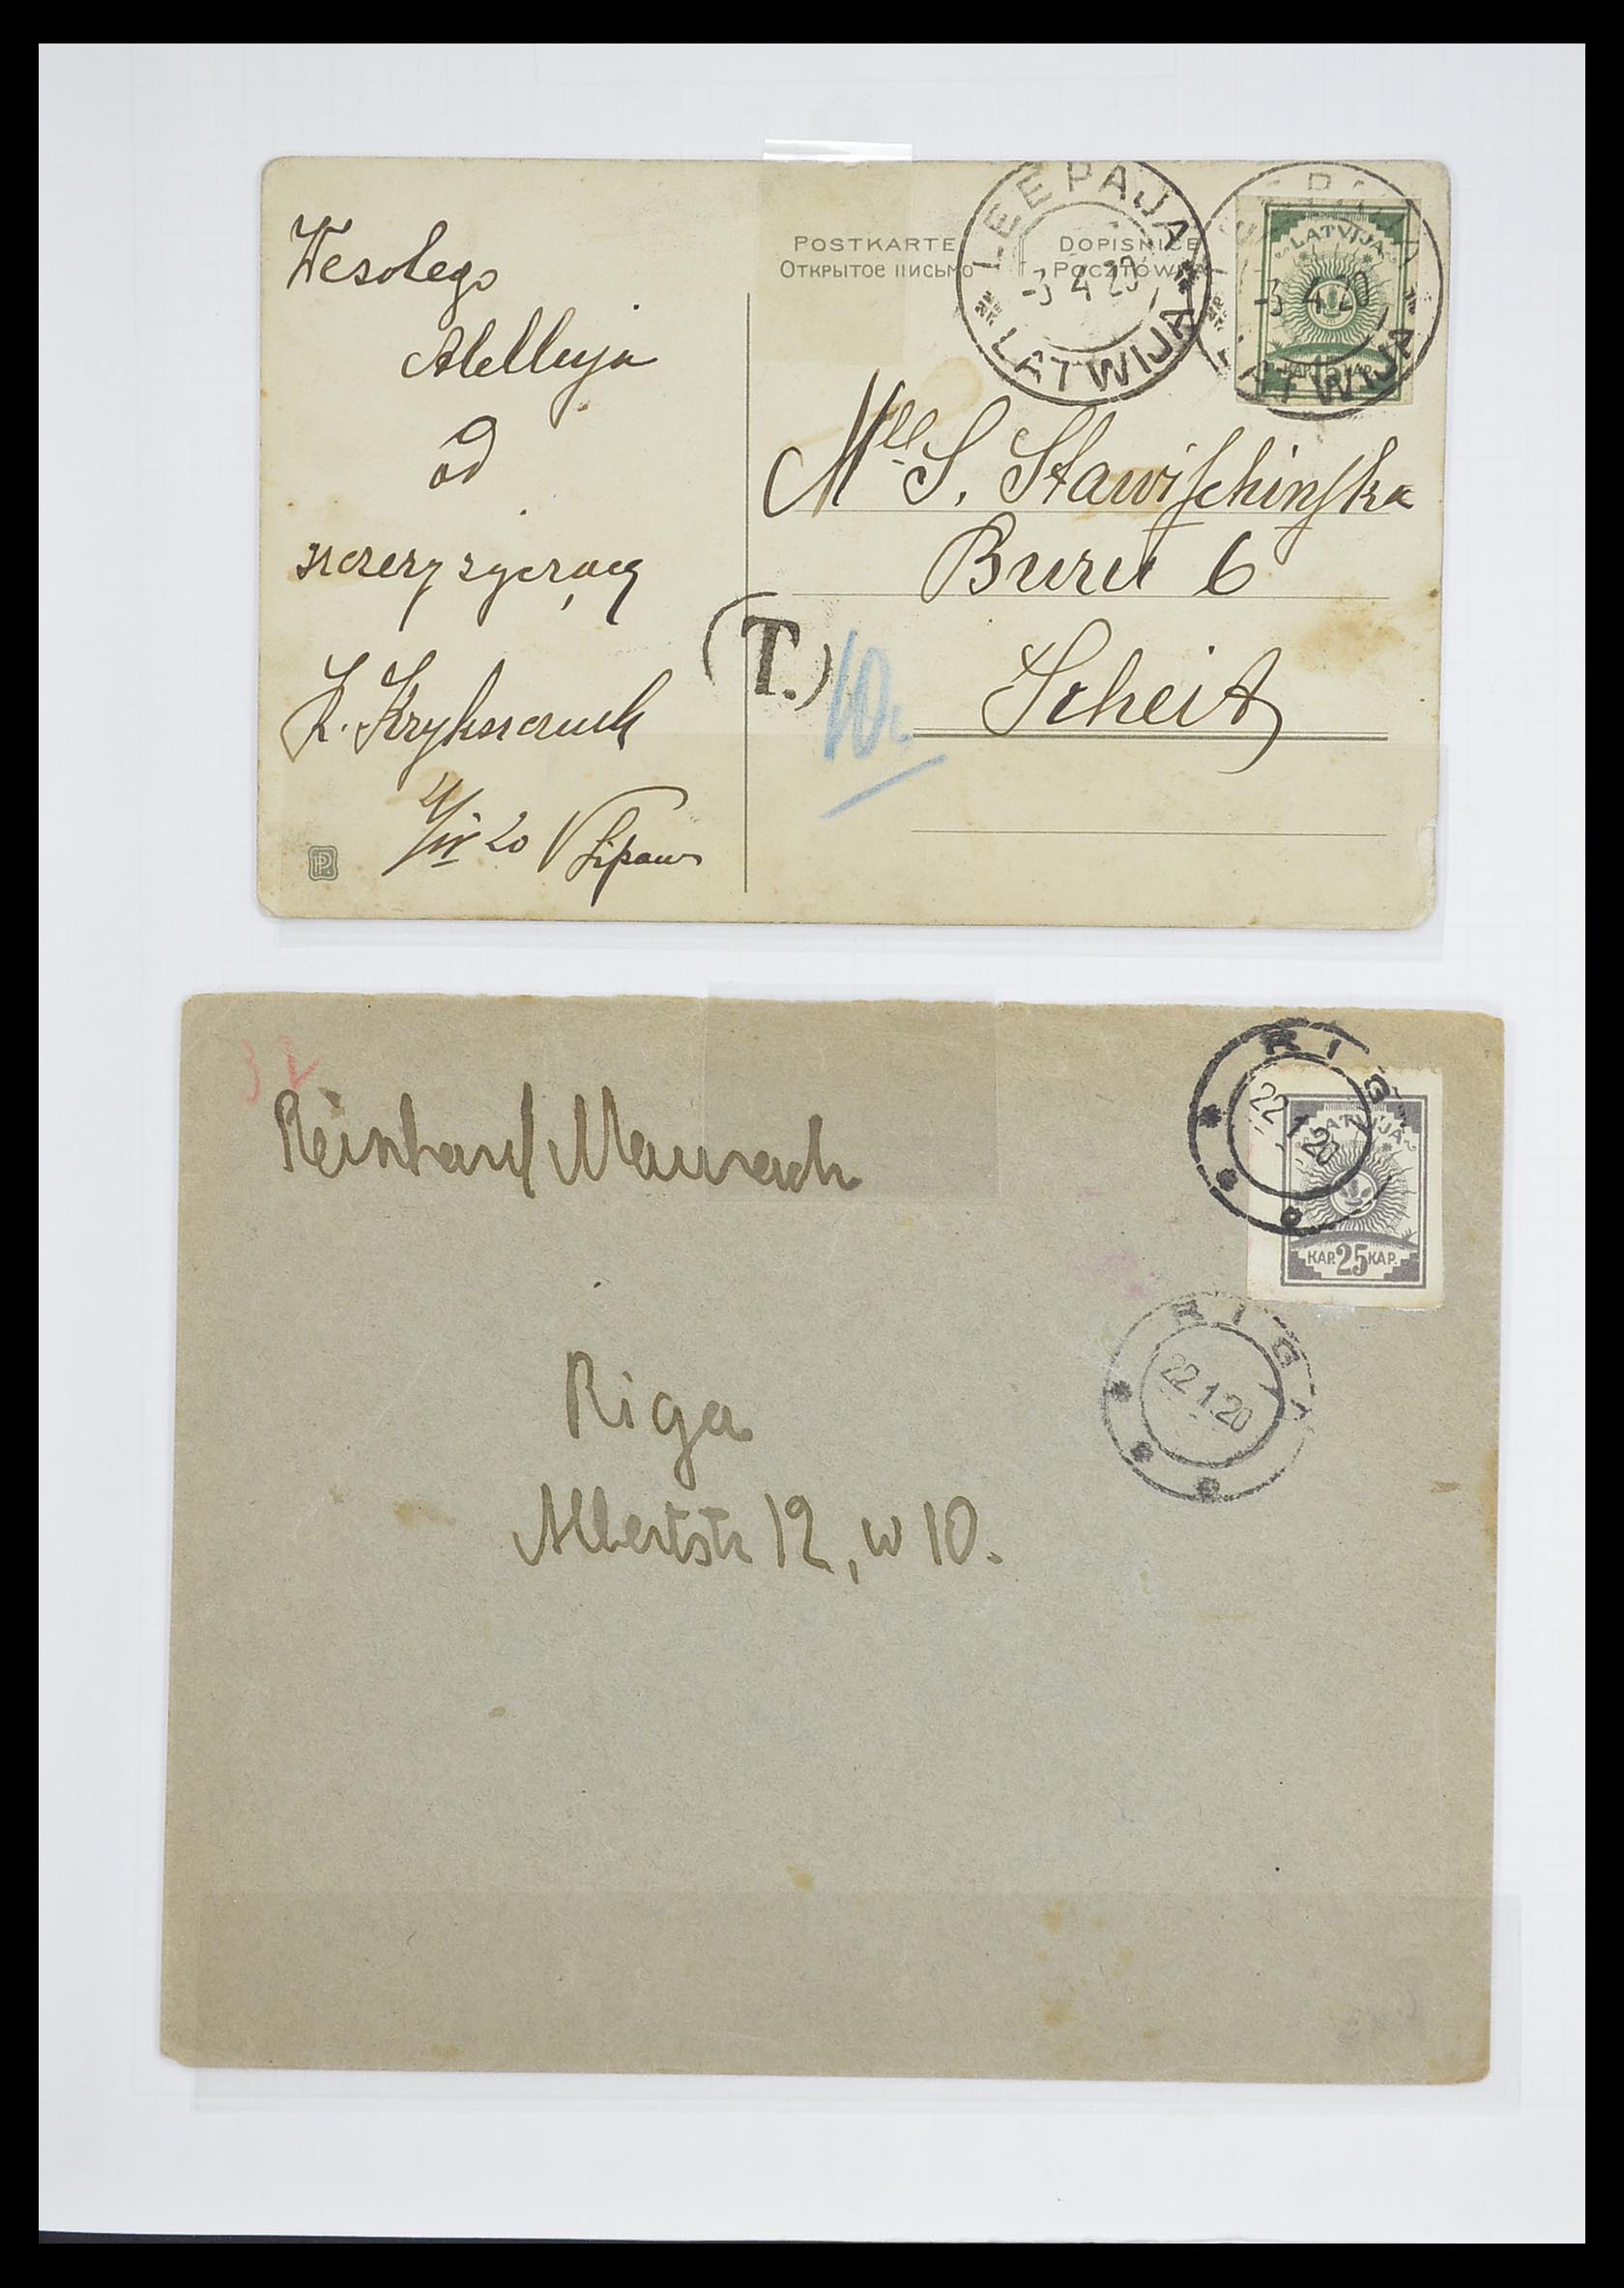 Wesolego
Alelluja
od
K. Kryknauk
20 Lipawa
POSTKARTE DOPISNICE
Открытое письмо POCZTOWA
LEEPAJA
-3 4 20
LATWIJA
-3 4 20
LATWIJA
LATVIJA
KAP. 15 KAP.
Mlle S. Stawischinska
Buru 6
Scheit
T.
10
32
Reinhard Maurach
Riga
Albertstr 12, w 10.
RIGA
22 1 20
LATVIJA
KAP. 25 KAP.
RIGA
22 1 20